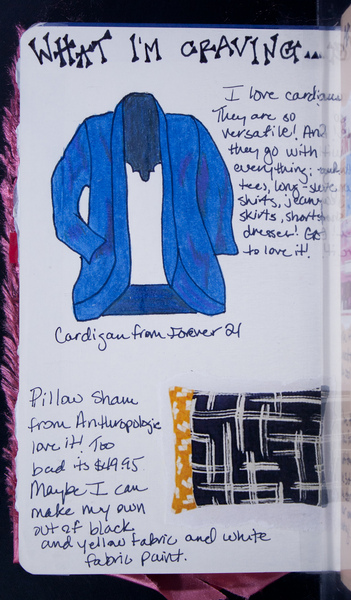 WHAT I'M CRAVING...
I love cardigans
They are so
versatile! And
they go with
everything:
tees, long-sleeve
shirts, jeans,
skirts, shorts
dresses! Got
to love it!
Cardigan from Forever 21
Pillow Sham
from Anthropologie
love it! Too
bad is $49.95
Maybe I can
make my own
out of black
and yellow fabric and white
fabric paint.